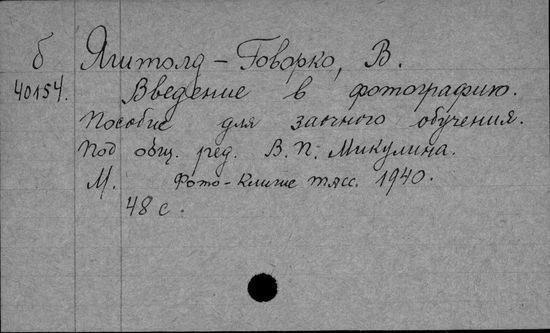 б Ягитолд-Говорко, В.
40154. Введение в фотографию.
Пособие для заочного обучения.
Под общ. ред. В.П. Микулина.
М. Фото-Клише ТАСС. 1940.
48 с.